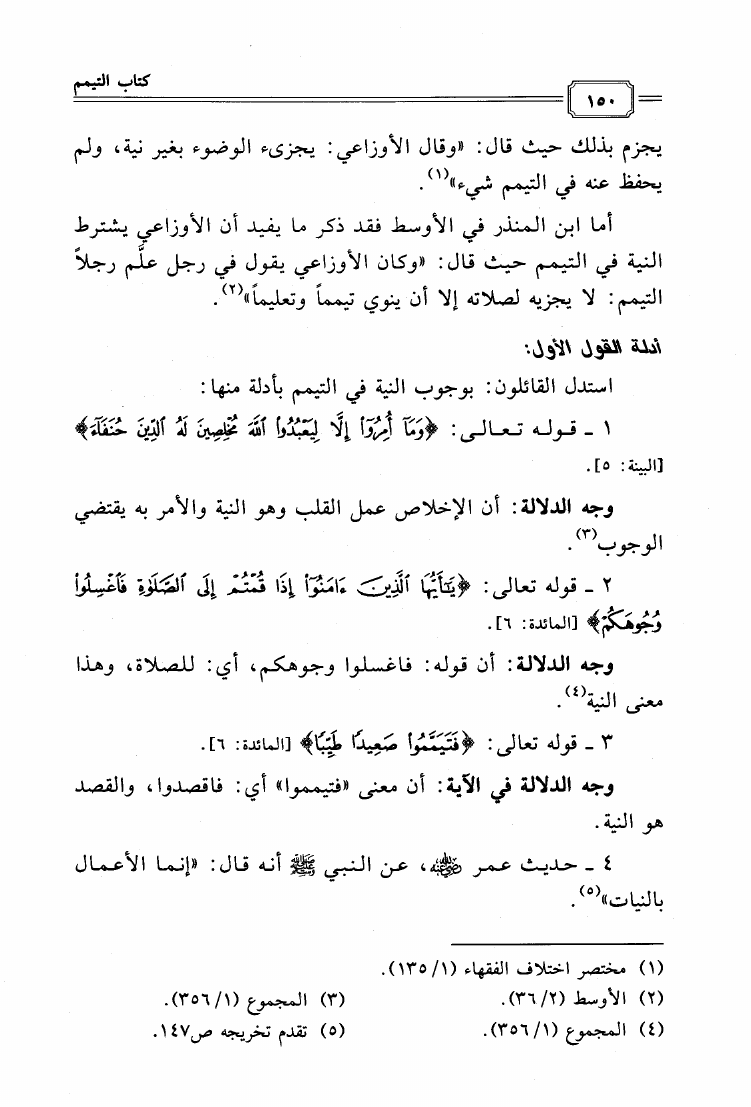 كتاب التيمم
١٥٠
يجزم بذلك حيث قال: «وقال الأوزاعي: يجزىء الوضوء بغير نية، ولم
يحفظ عنه في التيمم شيء»(١).
أما ابن المنذر في الأوسط فقد ذكر ما يفيد أن الأوزاعي يشترط
النية في التيمم حيث قال: «وكان الأوزاعي يقول في رجل علَّم رجلاً
التيمم: لا يجزيه لصلاته إلا أن ينوي تيمماً وتعليماً»(٢).
أدلة القول الأول:
استدل القائلون: بوجوب النية في التيمم بأدلة منها:
١ - قوله تعالى: ﴿وَمَآ أُمِرُوٓاْ إِلَّا لِيَعْبُدُواْ ٱللَّهَ مُخْلِصِينَ لَهُ ٱلدِّينَ حُنَفَآءَ﴾
[البينة: ٥].
وجه الدلالة: أن الإخلاص عمل القلب وهو النية والأمر به يقتضي
الوجوب(٣).
٢ - قوله تعالى: ﴿يَٰٓأَيُّهَا ٱلَّذِينَ ءَامَنُوٓاْ إِذَا قُمْتُمْ إِلَى ٱلصَّلَوٰةِ فَٱغْسِلُواْ
وُجُوهَكُمْ﴾ [المائدة: ٦].
وجه الدلالة: أن قوله: فاغسلوا وجوهكم، أي: للصلاة، وهذا
معنى النية(٤).
٣ - قوله تعالى: ﴿فَتَيَمَّمُواْ صَعِيدًا طَيِّبًا﴾ [المائدة: ٦].
وجه الدلالة في الآية: أن معنى «فتيمموا» أي: فاقصدوا، والقصد
هو النية.
٤ - حديث عمر رضي الله عنه، عن النبي ﷺ أنه قال: «إنما الأعمال
بالنيات»(٥).
(١) مختصر اختلاف الفقهاء (١/١٣٥).
(٢) الأوسط (٢/٣٦). (٣) المجموع (١/٣٥٦).
(٤) المجموع (١/٣٥٦). (٥) تقدم تخريجه ص١٤٧.